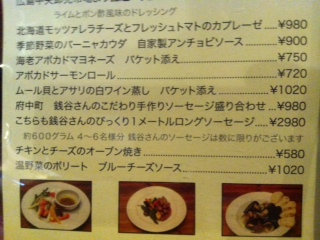 ライムとポン酢風味のドレッシング
北海道モッツァレラチーズとフレッシュトマトのカプレーゼ ¥980
季節野菜のバーニャカウダ 自家製アンチョビソース ¥900
海老アボカドマヨネーズ バケット添え ¥750
アボカドサーモンロール ¥720
ムール貝とアサリの白ワイン蒸し バケット添え ¥1020
府中町 銭谷さんのこだわり手作りソーセージ盛り合わせ ¥980
こちらも銭谷さんのびっくり1メートルロングソーセージ ¥2980
約600グラム 4〜6名様分 銭谷さんのソーセージは数に限りがございます
チキンとチーズのオーブン焼き ¥580
温野菜のポリート ブルーチーズソース ¥1020